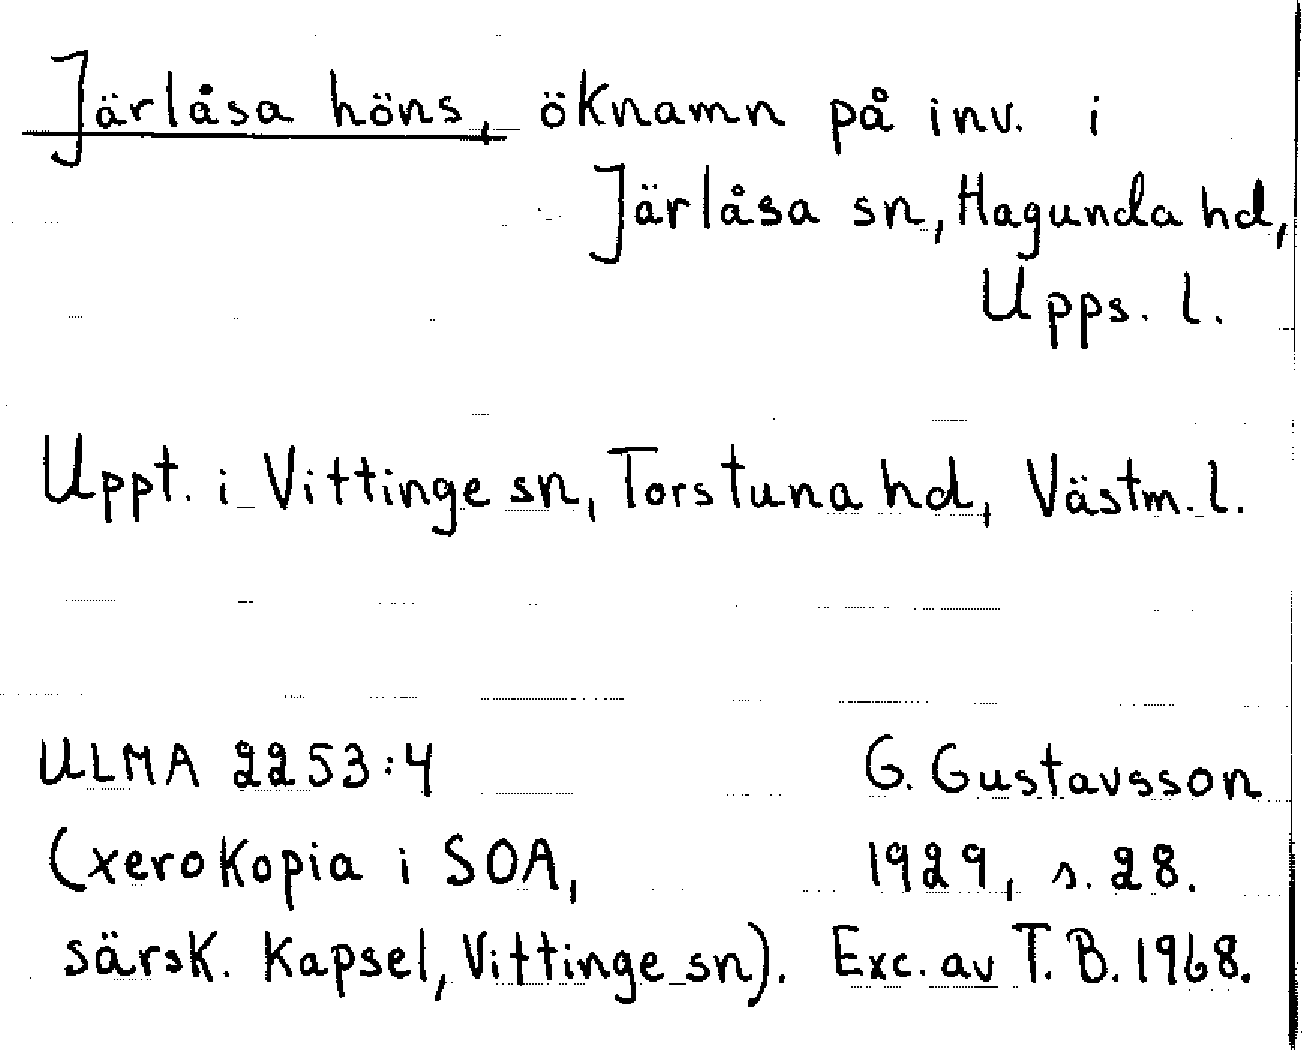 Järlåsa höns, öknamn på inv. i
Järlåsa sn, Hagunda hd,
Upps. l.
Uppt. i Vittinge sn, Torstuna hd, Västm. l.
ULMA 2253:4 G. Gustavsson
(xerokopia i SOA, 1929, s. 28.
särsk. kapsel, Vittinge sn). Exc. av T. B. 1968.